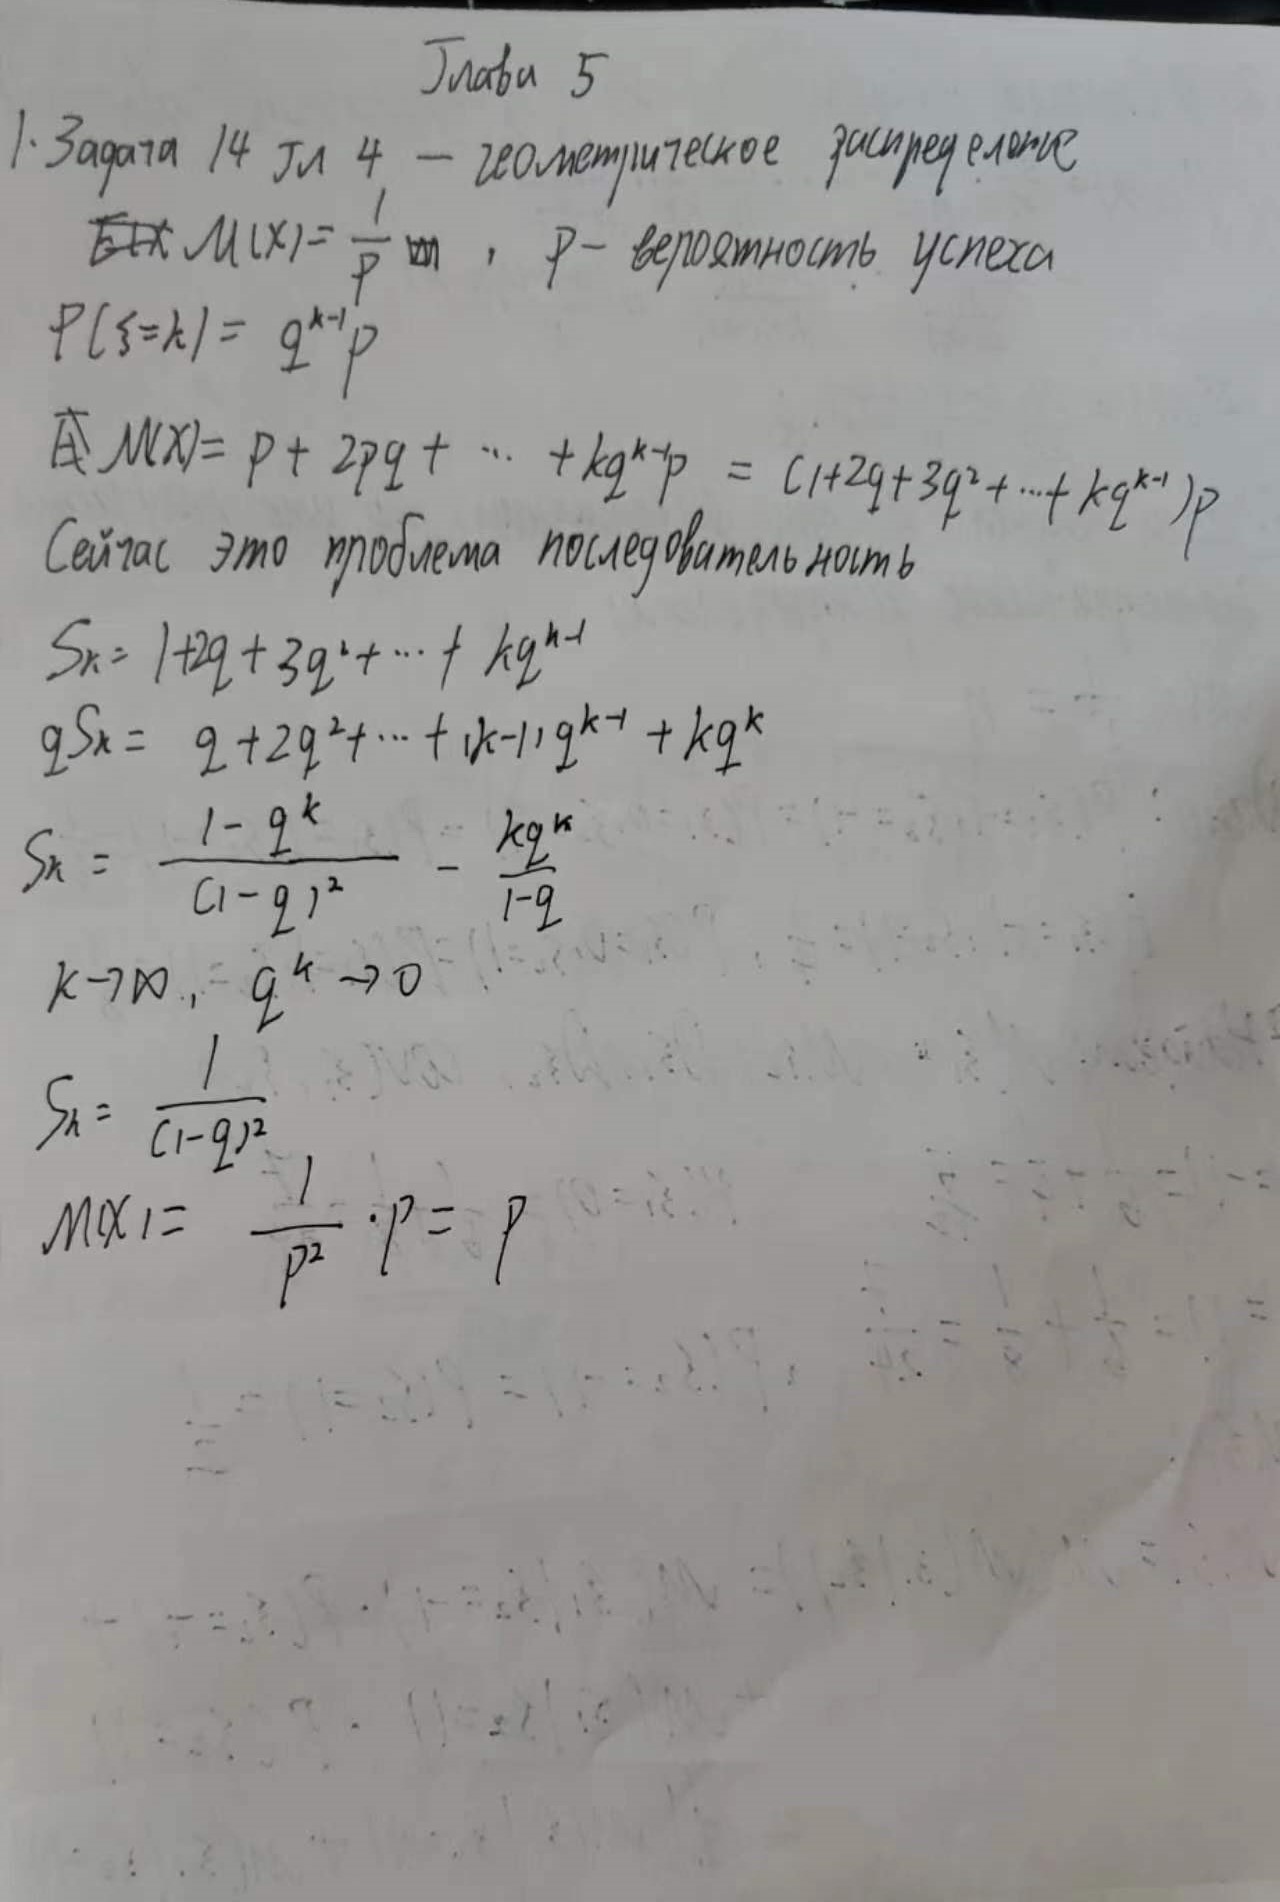 Глава 5
1. Задача 14 Гл 4 — геометрическое распределение
M(X) = 1/p , p – вероятность успеха
P(ξ=k) = q^{k-1}p
M(X) = p + 2pq + ... + kq^{k-1}p = (1+2q+3q²+...+kq^{k-1})p
Сейчас это проблема последовательность
Sₖ = 1+2q+3q²+...+kq^{k-1}
qSₖ = q+2q²+...+(k-1)q^{k-1}+kq^k
Sₖ = (1-q^k)/(1-q)² - kq^k/(1-q)
k→∞, q^k→0
Sₖ = 1/(1-q)²
M(X) = 1/p² · p = p